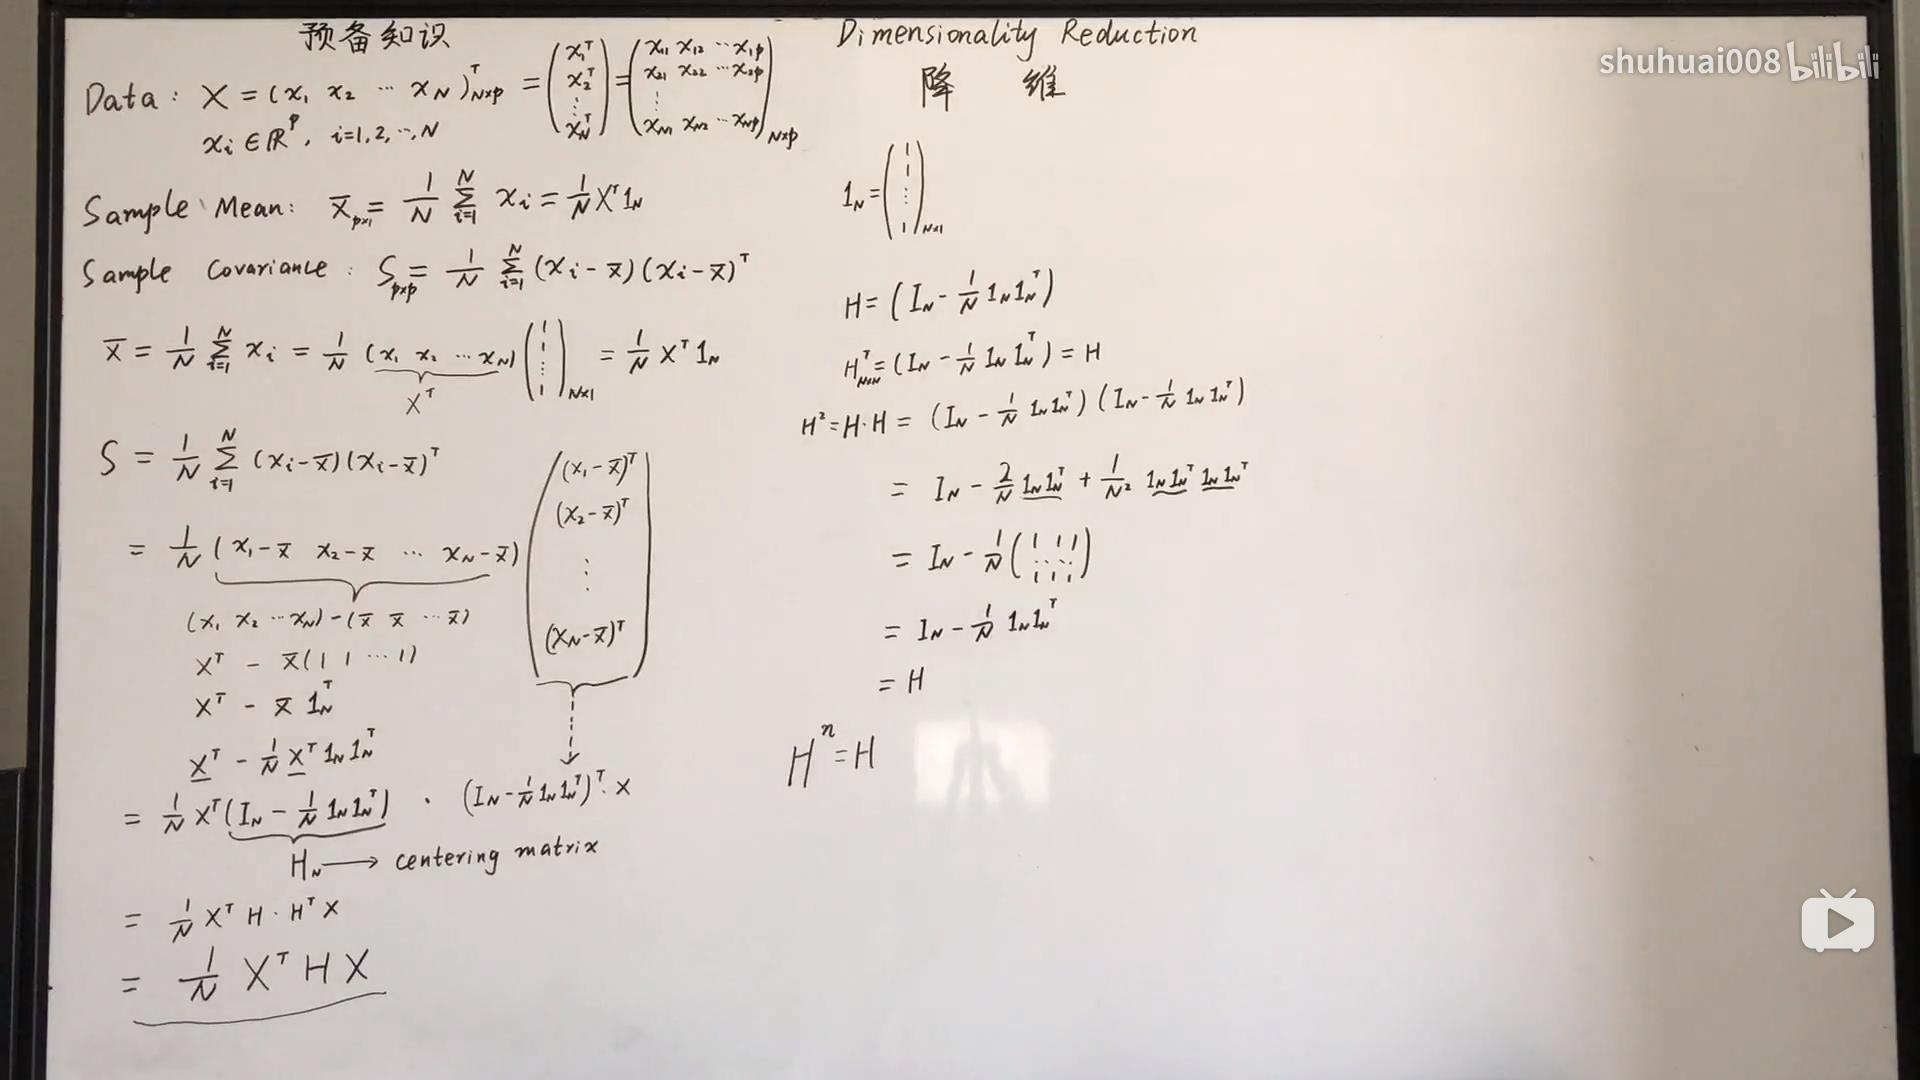 预备知识
Data: X = (x₁ x₂ ⋯ x_N)ᵀ_{N×p} = (x₁ᵀ x₂ᵀ ⋮ x_Nᵀ) = (x₁₁ x₁₂ ⋯ x₁p x₂₁ x₂₂ ⋯ x₂p ⋮ x_N1 x_N2 ⋯ x_Np)_{N×p}
xᵢ ∈ ℝᵖ, i=1,2,⋯,N
Sample Mean: X̄_{p×1} = 1/N Σ_{i=1}^N xᵢ = 1/N Xᵀ1_N
Sample Covariance: S_{p×p} = 1/N Σ_{i=1}^N (xᵢ - x̄)(xᵢ - x̄)ᵀ
X̄ = 1/N Σ_{i=1}^N xᵢ = 1/N (x₁ x₂ ⋯ x_N) (1 1 ⋮ 1)_{N×1} = 1/N Xᵀ 1_N
Xᵀ
S = 1/N Σ_{i=1}^N (xᵢ-x̄)(xᵢ-x̄)ᵀ
= 1/N (x₁-x̄ x₂-x̄ ⋯ x_N-x̄) ((x₁-x̄)ᵀ (x₂-x̄)ᵀ ⋮ (x_N-x̄)ᵀ)
(x₁ x₂ ⋯ x_N) - (x̄ x̄ ⋯ x̄)
Xᵀ - x̄(1 1 ⋯ 1)
Xᵀ - x̄ 1_Nᵀ
Xᵀ - 1/N Xᵀ 1_N 1_Nᵀ
= 1/N Xᵀ(I_N - 1/N 1_N1_Nᵀ) · (I_N - 1/N 1_N1_Nᵀ)ᵀ · X
H_N → centering matrix
= 1/N Xᵀ H · Hᵀ X
= 1/N Xᵀ H X
Dimensionality Reduction
降 维
1_N = (1 1 ⋮ 1)_{N×1}
H = (I_N - 1/N 1_N1_Nᵀ)
Hᵀ_{N×N} = (I_N - 1/N 1_N 1_Nᵀ) = H
H² = H·H = (I_N - 1/N 1_N1_Nᵀ)(I_N - 1/N 1_N 1_Nᵀ)
= I_N - 2/N 1_N1_Nᵀ + 1/N² 1_N1_Nᵀ 1_N1_Nᵀ
= I_N - 1/N (1 1 1 ⋯ 1 1 1)
= I_N - 1/N 1_N1_Nᵀ
= H
Hⁿ = H
shuhuai008 bilibili